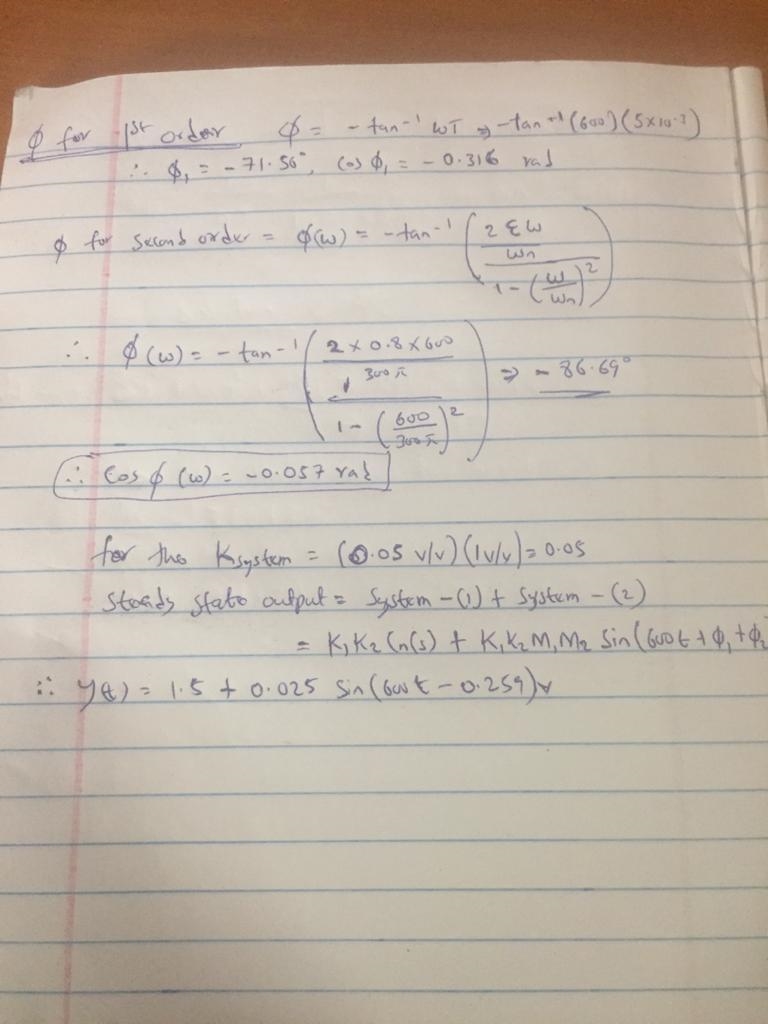 φ for 1st order φ = - tan⁻¹ ωT ⇒ -tan⁻¹(600)(5×10⁻³)
∴ φ₁ = -71.56°, cos φ₁ = -0.316 rad
φ for second order = φ(ω) = -tan⁻¹ ( (2 Ɛ ω / ωn) / (1 - (ω/ωn)²) )
∴ φ(ω) = -tan⁻¹ ( (2 × 0.8 × 600 / 300π) / (1 - (600/300π)²) ) ⇒ - 86.69°
∴ Cos φ (ω) = -0.057 rad
for the Ksystem = (0.05 v/v)(1v/v) = 0.05
steady state output = System -(1) + System - (2)
= K₁K₂ (n(s) + K₁K₂M₁M₂ Sin(600t + φ₁ + φ₂
∴ y(t) = 1.5 + 0.025 Sin(600t - 0.259)v